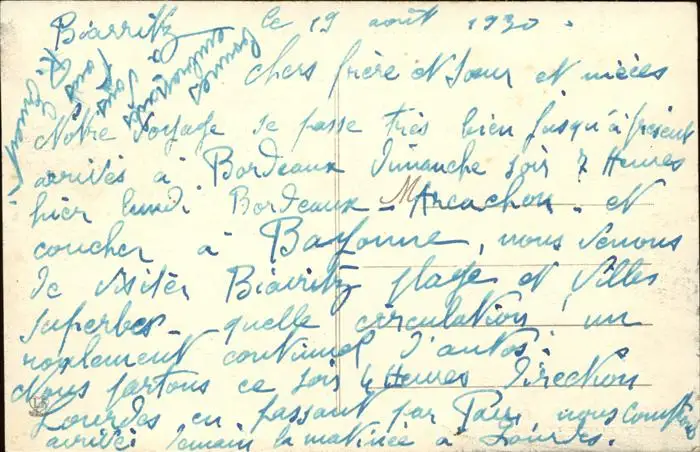 Biarritz le 19 août 1930.
Chers frère et Sœur et nièces
Notre voyage se passe très bien jusqu'à présent
arrivés à Bordeaux Dimanche soir 7 Heures
hier lundi Bordeaux - Arcachon. et
coucher à Bayonne, nous venons
de visiter Biarritz plage et Villes
superbes - quelle circulation! un
roulement continuel d'autos.
Nous partons ce soir 4 Heures Direction
Lourdes en passant par Pau, nous comptons
arriver demain la matinée à Lourdes.
bonnes
embrassades
à tous